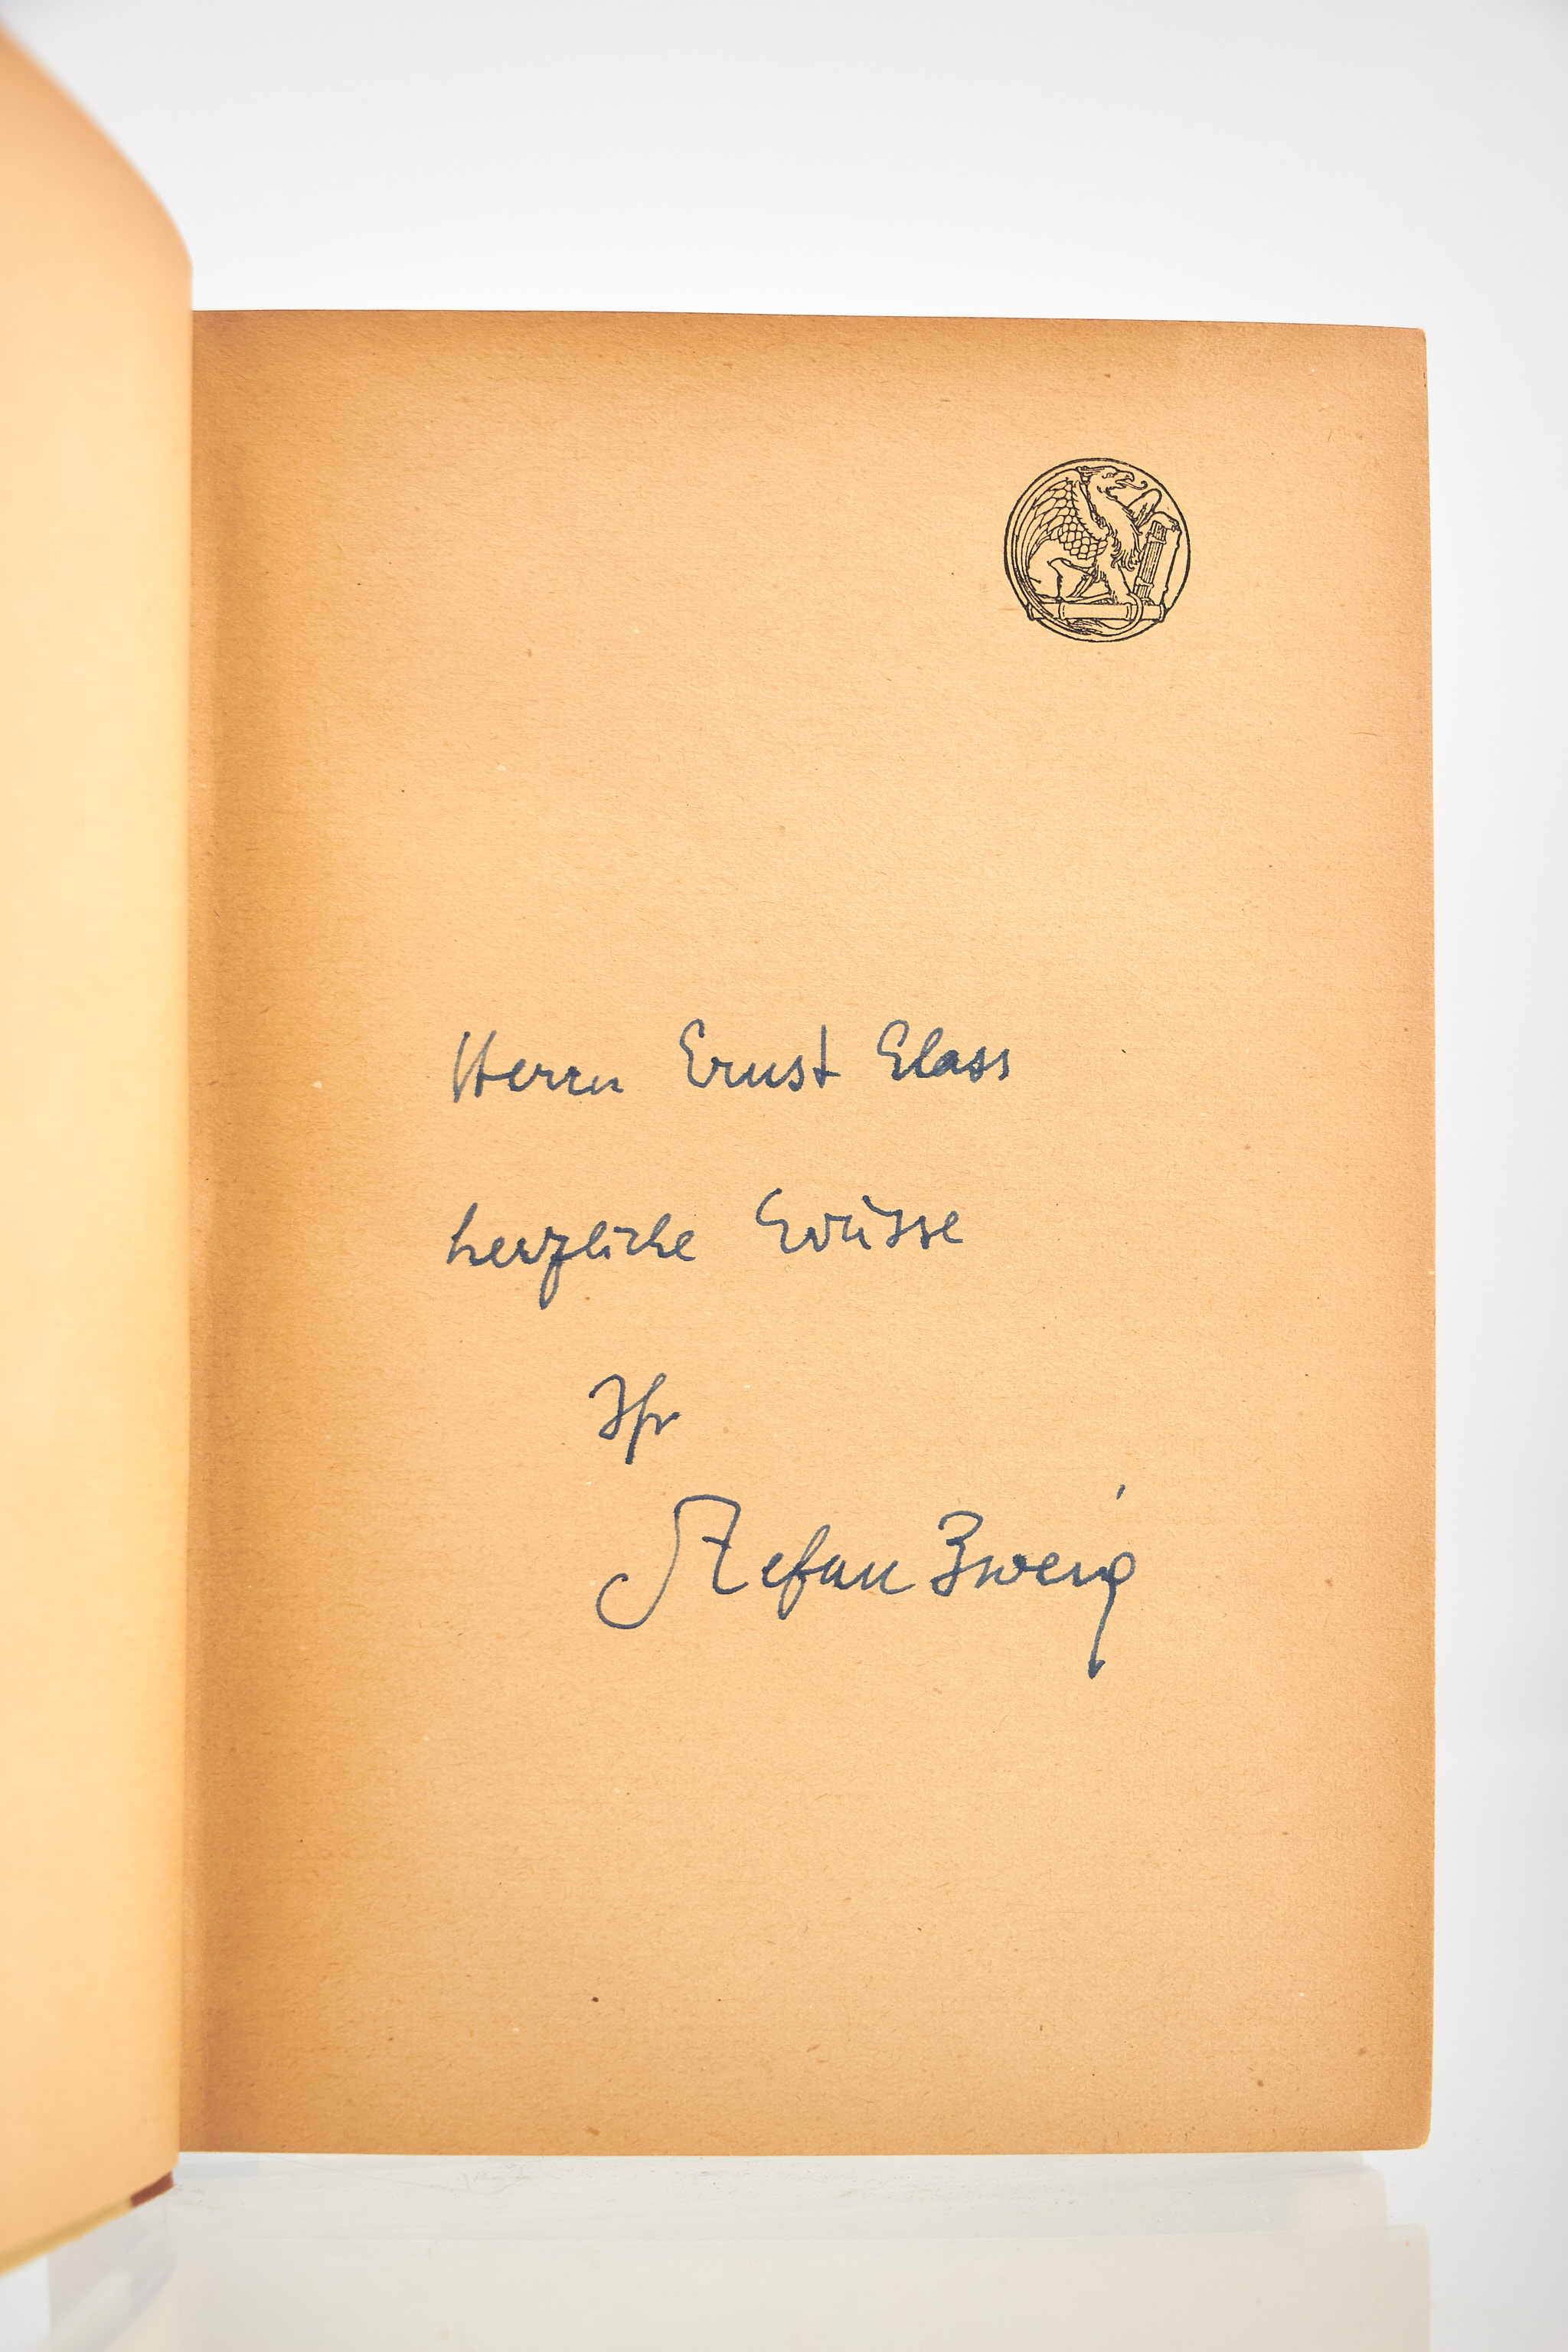 Herrn Ernst Elass
herzliche Grüsse
Ihr
Stefan Zweig